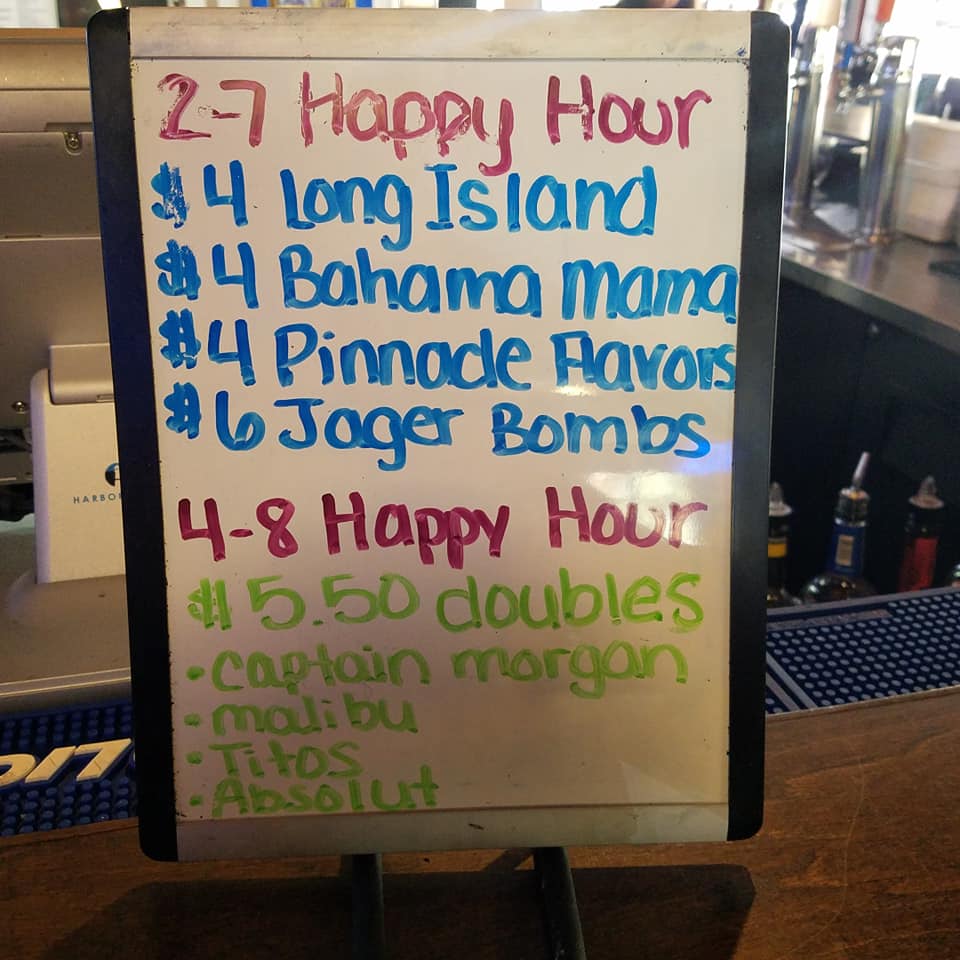 2-7 Happy Hour
$4 Long Island
$4 Bahama Mama
$4 Pinnacle Flavors
$6 Jager Bombs
4-8 Happy Hour
$5.50 doubles
• captain morgan
• malibu
• Titos
• Absolut
HARBOR